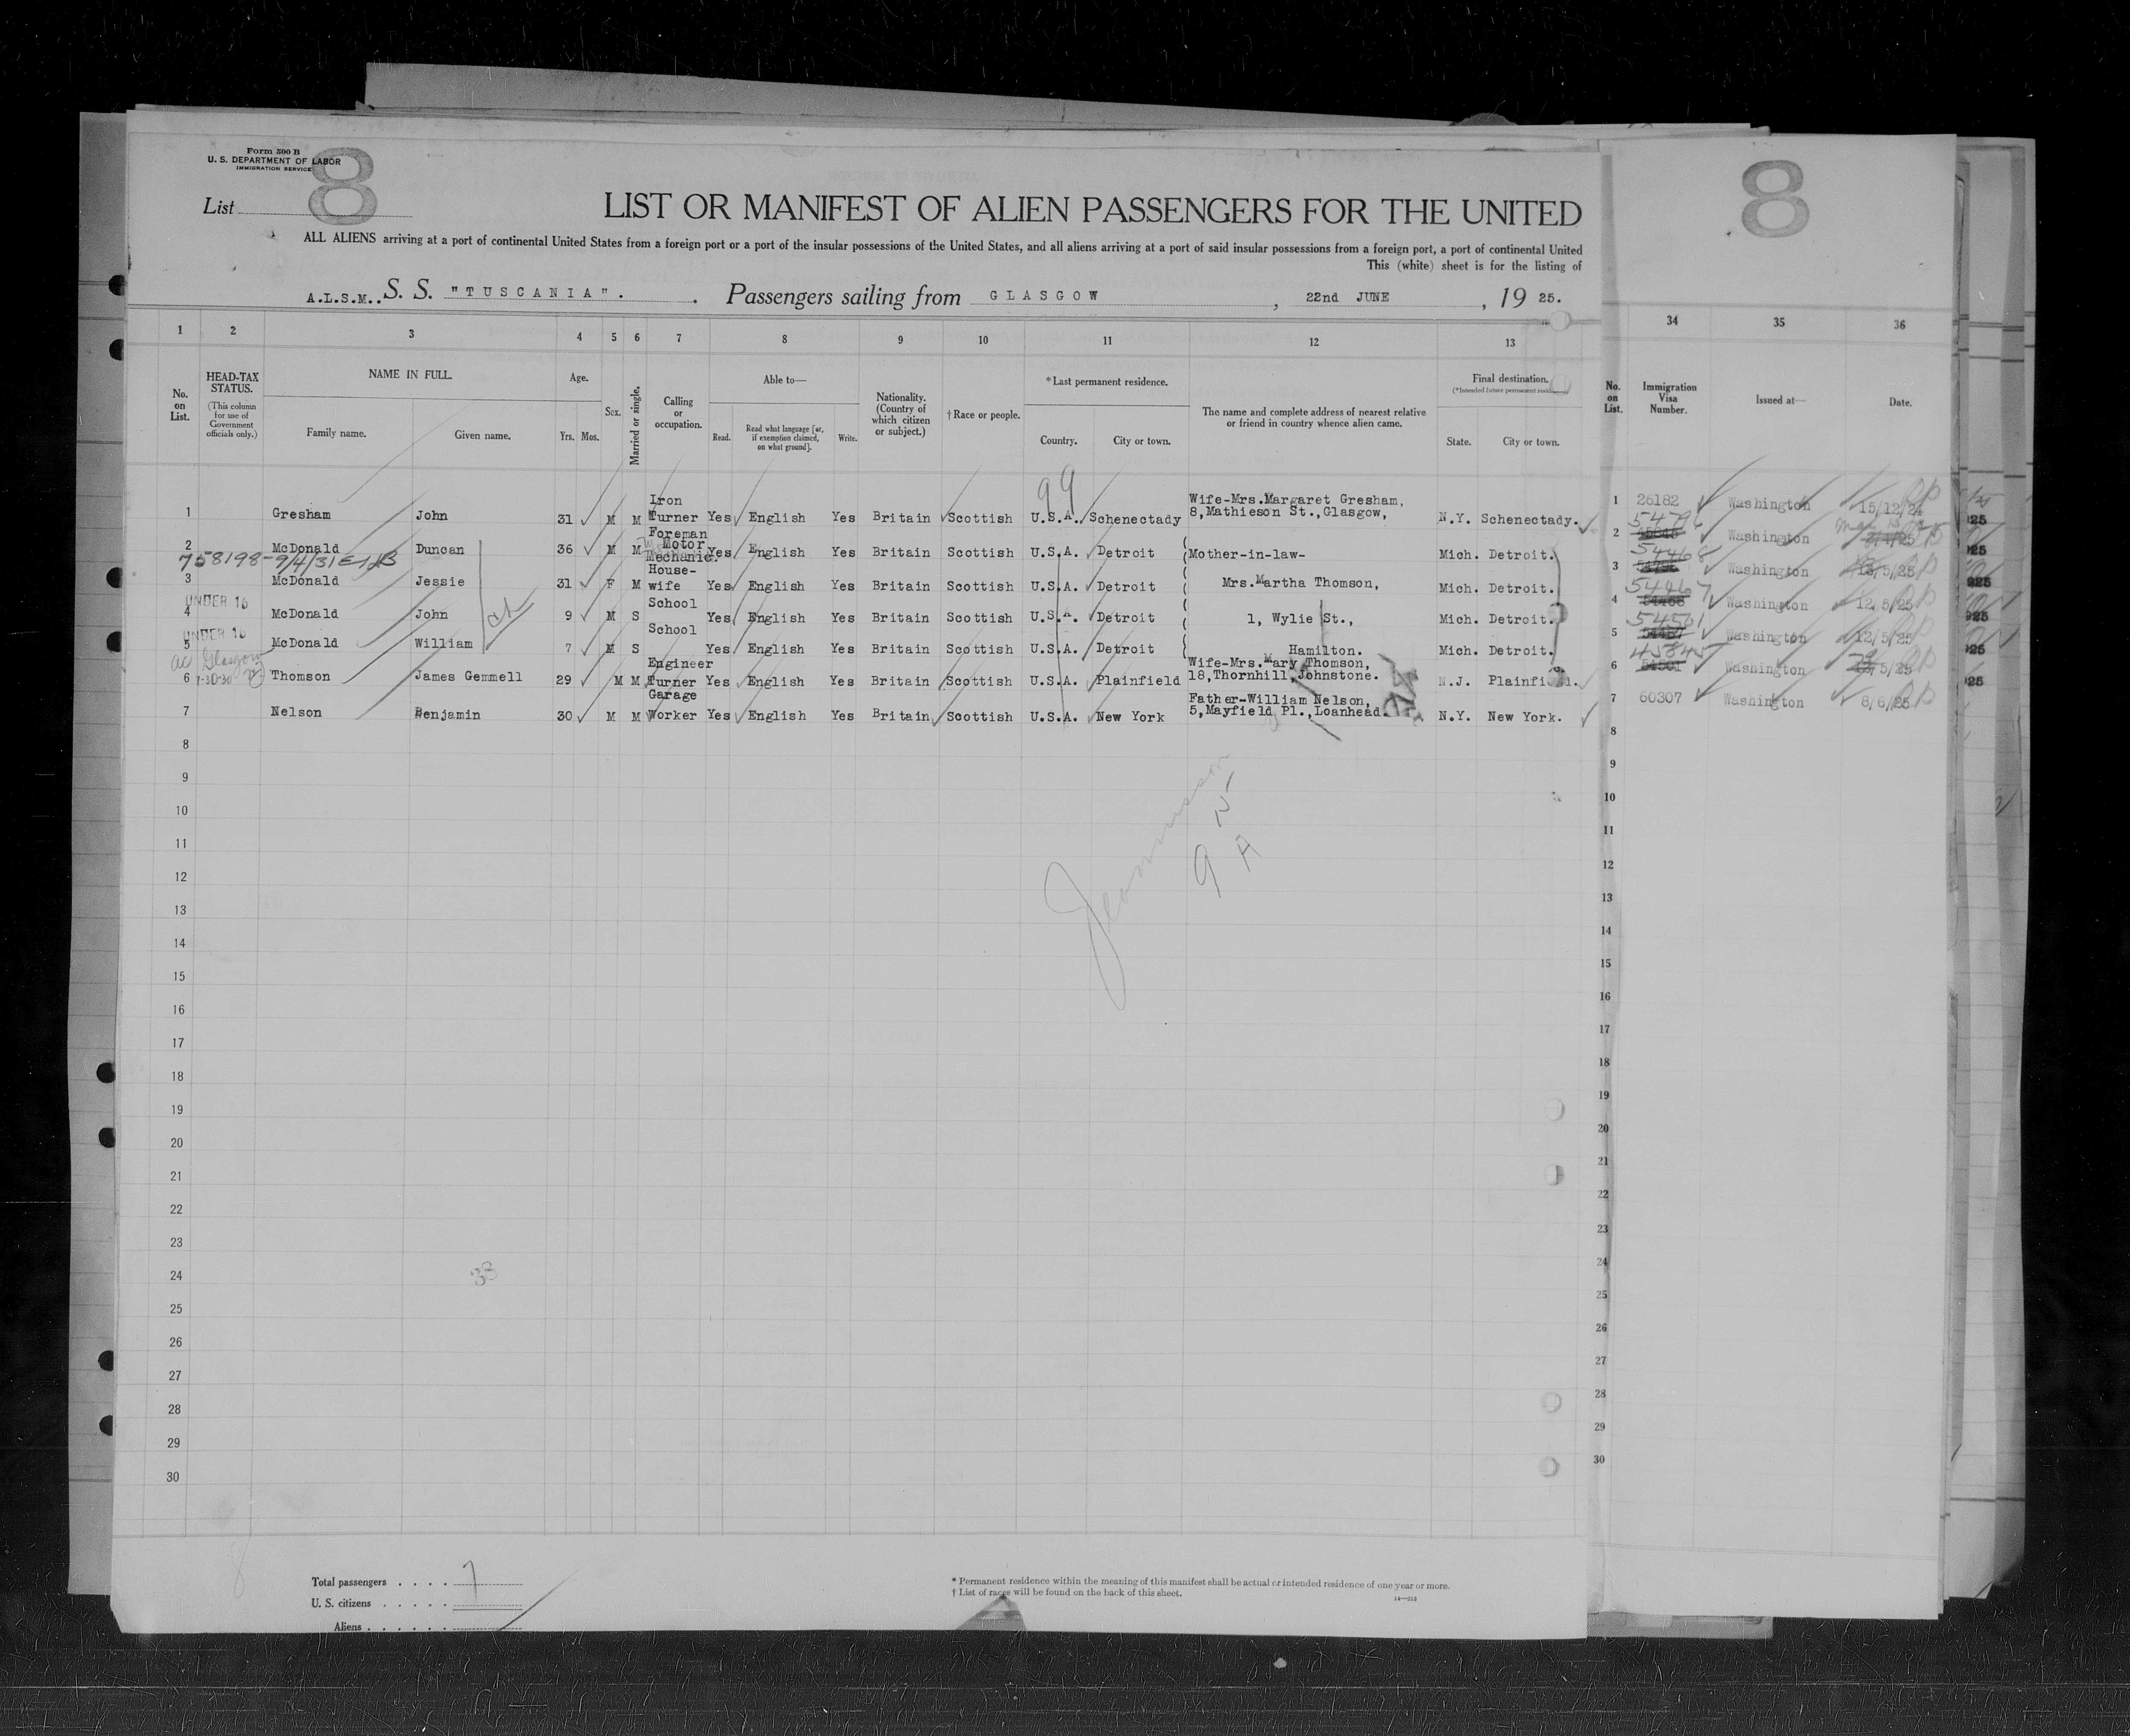 Form 500 B
U. S. DEPARTMENT OF LABOR
IMMIGRATION SERVICE
List 8
LIST OR MANIFEST OF ALIEN PASSENGERS FOR THE UNITED
ALL ALIENS arriving at a port of continental United States from a foreign port or a port of the insular possessions of the United States, and all aliens arriving at a port of said insular possessions from a foreign port, a port of continental United
This (white) sheet is for the listing of
A.L.S.M.. S. S. "TUSCANIA". Passengers sailing from GLASGOW, 22nd JUNE, 19 25.
8
1 2 3 4 5 6 7 8 9 10 11 12 13
34 35 36
No. on List.
HEAD-TAX STATUS.
(This column for use of Government officials only.)
NAME IN FULL.
Family name. Given name.
Age.
Yrs. Mos.
Sex.
Married or single.
Calling or occupation.
Able to—
Read. Read what language [or, if exemption claimed, on what ground]. Write.
Nationality. (Country of which citizen or subject.)
† Race or people.
*Last permanent residence.
Country. City or town.
The name and complete address of nearest relative or friend in country whence alien came.
Final destination.
State. City or town.
No. on List.
Immigration Visa Number.
Issued at—
Date.
99
1 Gresham John 31 M M Iron Turner Yes English Yes Britain Scottish U.S.A. Schenectady Wife-Mrs.Margaret Gresham, 8,Mathieson St.,Glasgow, N.Y. Schenectady. 1 26182 Washington 15/12/24
2 McDonald Duncan 36 M M Foreman Motor Mechanic. Yes English Yes Britain Scottish U.S.A. Detroit Mother-in-law- Mich. Detroit. 2 54796 Washington
758198-9/4/31
3 McDonald Jessie 31 F M House-wife Yes English Yes Britain Scottish U.S.A. Detroit Mrs.Martha Thomson, Mich. Detroit. 3 54468 Washington
UNDER 16
4 McDonald John 9 M S School Yes English Yes Britain Scottish U.S.A. Detroit 1, Wylie St., Mich. Detroit. 4 54467 Washington 12/5/25
UNDER 16
5 McDonald William 7 M S School Yes English Yes Britain Scottish U.S.A. Detroit Hamilton. Mich. Detroit. 5 54501 Washington 12/5/25
Glasgow
7-30-30
6 Thomson James Gemmell 29 M M Engineer Turner Yes English Yes Britain Scottish U.S.A. Plainfield Wife-Mrs.Mary Thomson, 18,Thornhill,Johnstone. N.J. Plainfield. 6 45845 Washington
7 Nelson Benjamin 30 M M Garage Worker Yes English Yes Britain Scottish U.S.A. New York Father-William Nelson, 5,Mayfield Pl.,Loanhead. N.Y. New York. 7 60307 Washington 8/6/25
8 8
9 9
10 10
11 11
12 12
13 13
14 14
15 15
16 16
17 17
18 18
19 19
20 20
21 21
22 22
23 23
24 38 24
25 25
26 26
27 27
28 28
29 29
30 30
Total passengers . . . . 7
U. S. citizens . . . . .
Aliens . . . . . .
* Permanent residence within the meaning of this manifest shall be actual or intended residence of one year or more.
† List of races will be found on the back of this sheet.
14—213